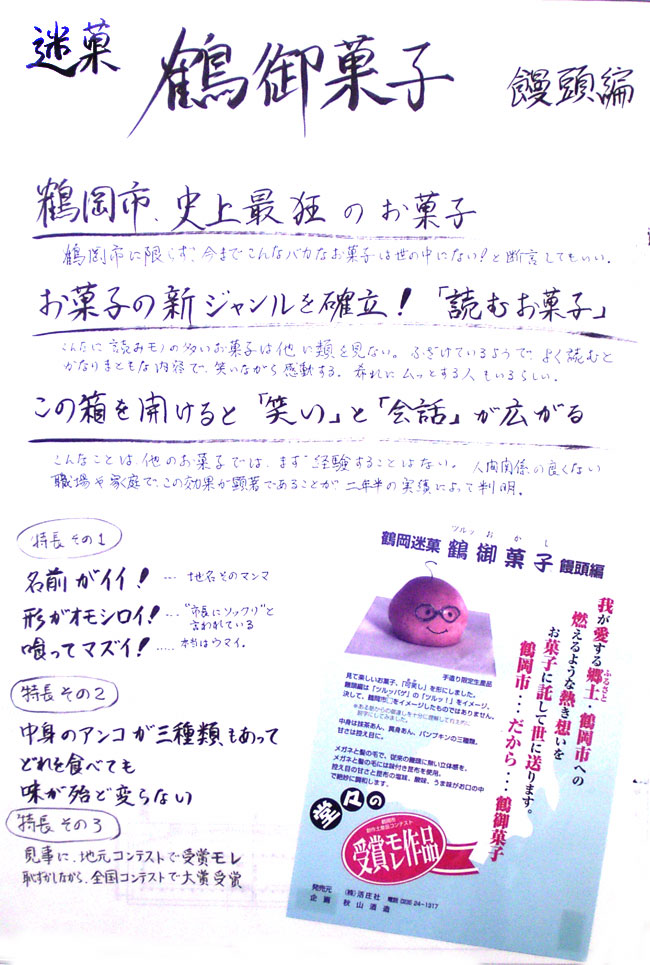 迷菓 鶴御菓子 饅頭編
鶴岡市、史上最狂のお菓子
鶴岡市に限らず、今までこんなバカなお菓子は世の中にない!と断言してもいい。
お菓子の新ジャンルを確立!「読むお菓子」
こんなに読みモノの多いお菓子は他に類を見ない。ふざけているようで、よく読むと
かなりまともな内容で、笑いながら感動する。希れにムッとする人もいるらしい。
この箱を開けると「笑い」と「会話」が広がる
こんなことは、他のお菓子では、まず経験することはない。人間関係の良くない
職場や家庭で、この効果が顕著であることが、二年半の実績によって判明。
特長その1
名前がイイ!・・・・地名そのマンマ
形がオモシロイ!・・・"市長にソックリ"と
言われている
喰ってマズイ!・・・・本当はウマイ。
特長その2
中身のアンコが三種類もあって
どれを食べても
味が殆ど変らない
特長その3
見事に、地元コンテストで受賞モレ
恥ずかしながら、全国コンテストで大賞受賞
ツルッおかし
鶴岡迷菓 鶴御菓子 饅頭編
我が愛する郷土・鶴岡市への
ふるさと
燃えるような熱き想いを
お菓子に託して世に送ります。
鶴岡市・・・だから・・・鶴御菓子
手造り限定生産品
見て楽しいお菓子、「可笑し」を形にしました。
饅頭編は「ツルッパゲ」の「ツルッ!」をイメージ。
決して、鶴岡市〇をイメージしたものではありません。
中身は抹茶あん、黒身あん、パンプキンの三種類。
甘さは控え目に。
メガネと髪の毛で、従来の饅頭に無い立体感を。
メガネと髪の毛には味付き昆布を使用。
控え目の甘さと昆布の塩味、酸味、うま味がお口の中
で絶妙に調和します。
堂々の
鶴岡市
創作土産品コンテスト
受賞モレ作品
発売元 (株)活庄社 電話 0235 24-1317
企画 秋山酒造